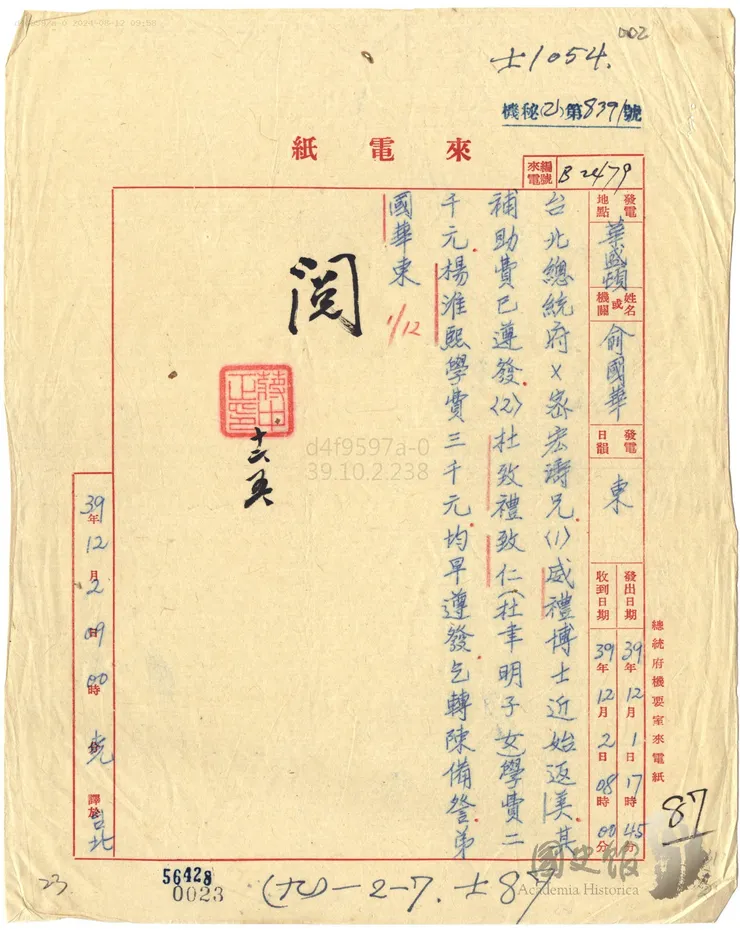 002
士1054.
機秘(乙)第8391號
來電紙
來電編號 B2479
發電地點 華盛頓
姓名或機關 俞國華
發電日韻 東
發出日期 39年12月1日17時45分
收到日期 39年12月2日08時00分
總統府機要室來電紙
台北總統府×密宏濤兄⑴威禮博士近始返美其
補助費已遵發⑵杜致禮致仁(杜聿明子女)學費二
千元楊淮熙學費三千元均早遵發乞轉陳備詧弟
國華東
1/12
閱
蔣中正印
39年12月2日09時00分 譯於台北
87
23
56428
0023
(九)-2-7.士87
國史館
Academia Historica
d4f9597a-0
39.10.2.238